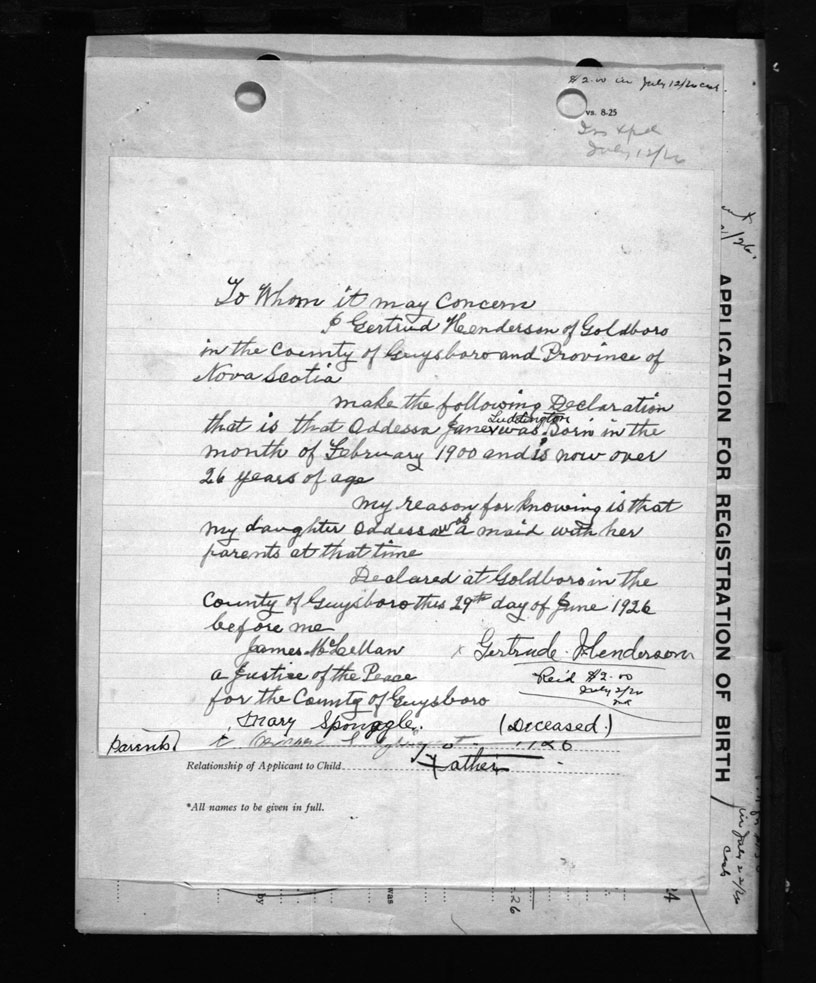 $2.00 in July 12/26 cash.
vs. 8-25
July 12/26
To Whom it may Concern
I Gertrud Henderson of Goldboro
in the County of Guysboro and Province of
Nova Scotia
make the following Declaration
that is that Oddessa Jane Luddington was Born in the
month of February 1900 and is now over
26 years of age
my reason for knowing is that
my daughter Oddessa was a maid with her
parents at that time
Declared at Goldboro in the
County of Guysboro this 29th day of June 1926
before me
James McLellan x Gertrude Henderson
a Justice of the Peace
for the County of Guysboro
Rec'd $2.00
July 2/26
Mary Sponagle. (Deceased.)
Parents
Relationship of Applicant to Child Father
*All names to be given in full.
APPLICATION FOR REGISTRATION OF BIRTH
by
was
26
24